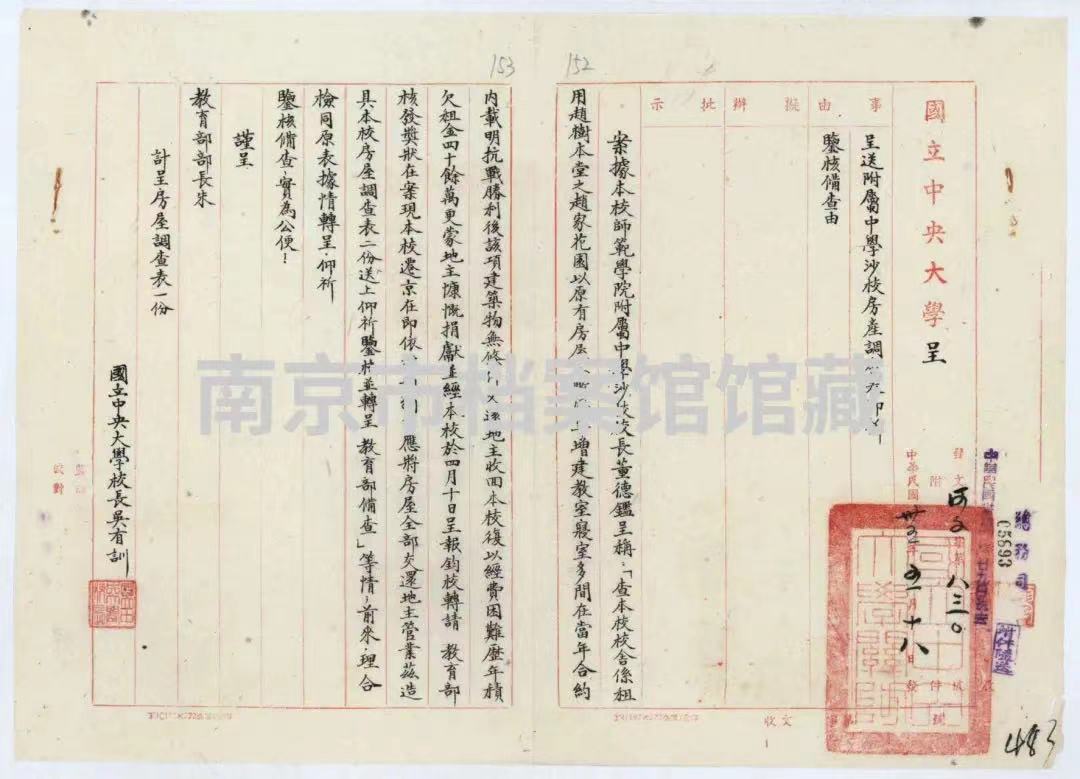 國立中央大學 呈
事由
擬辦
批示
呈送附屬中學沙校房產調
鑒核備查由
中華民國 卅五年 五月 十八日發
發文 字第 八三一〇 號
附件
總務司
05693
附件隨送
483
152
案據本校師範學院附屬中學沙校校長董德鑑呈稱：「查本校校舍係租
用趙樹本堂之趙家花園以原有房屋 增建教室寢室多間在當年合約
收文
153
內載明抗戰勝利後該項建築物無條 地主收回本校復以經費困難歷年積
欠租金四十餘萬更蒙地主慷慨捐獻並經本校於四月十日呈報鈞校轉請 教育部
核發獎狀在案現本校遷京在即依 應將房屋全部交還地主管業茲造
具本校房屋調查表二份送上仰祈鑒核並轉呈 教育部備查」等情，前來，理合
檢同原表據情轉呈，仰祈
鑒核備查，實為公便！
謹呈
教育部部長朱
計呈房屋調查表一份
國立中央大學校長吳有訓
校對
南京市档案馆馆藏